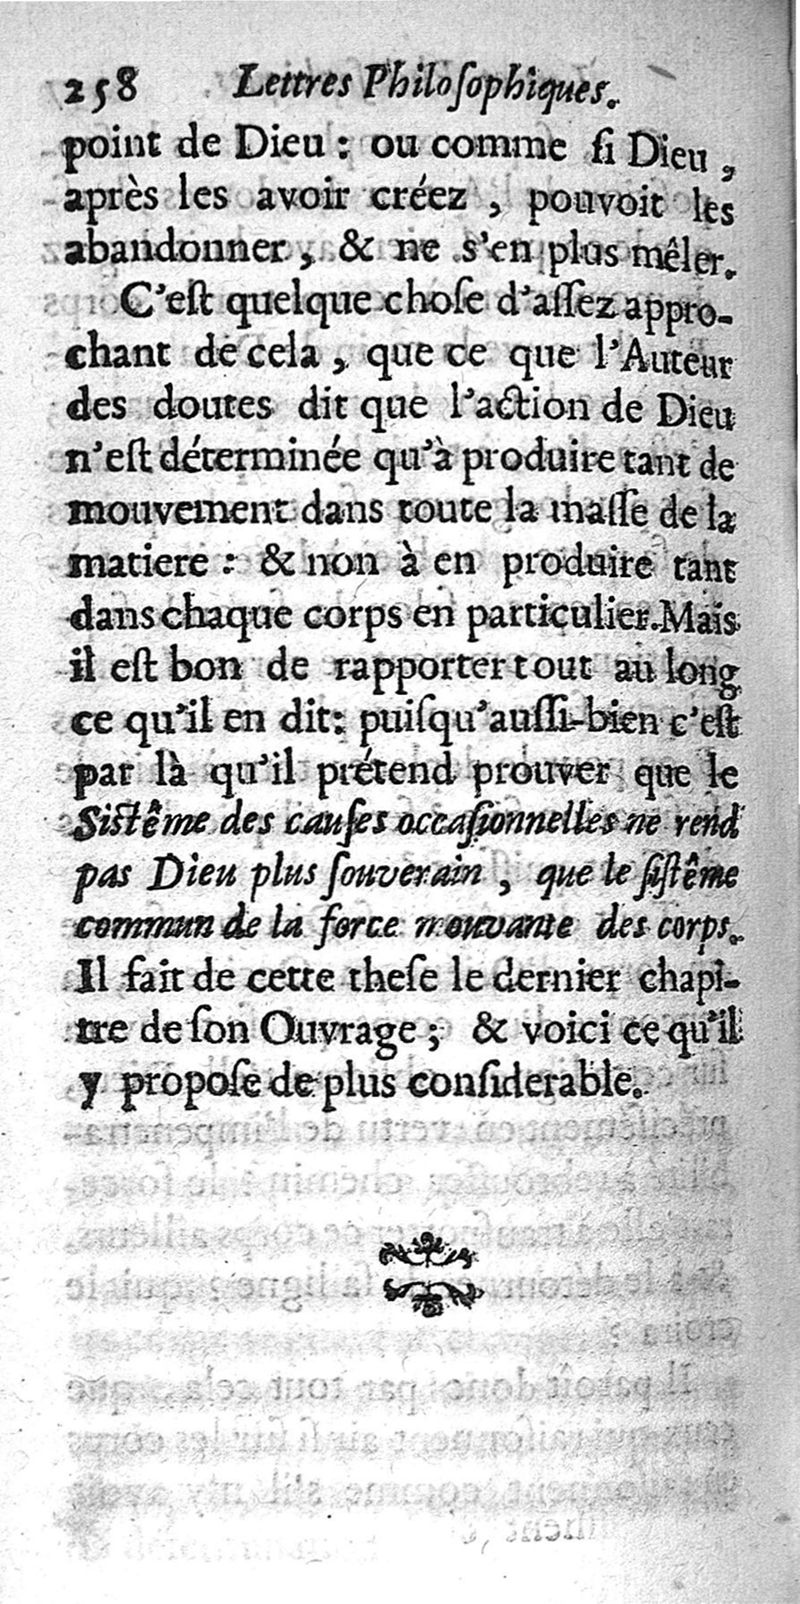 258 Lettres Philoſophiques.
point de Dieu : ou comme ſi Dieu ,
après les avoir créez , pouvoit les
abandonner , & ne s'en plus mêler.
C'eſt quelque choſe d'aſſez appro-
chant de cela , que ce que l'Auteur
des doutes dit que l'action de Dieu
n'eſt déterminée qu'à produire tant de
mouvement dans toute la maſſe de la
matiere : & non à en produire tant
dans chaque corps en particulier. Mais
il eſt bon de rapporter tout au long
ce qu'il en dit: puiſqu'auſſi-bien c'eſt
par là qu'il prétend prouver que le
Siſtême des cauſes occaſionnelles ne rend
pas Dieu plus ſouverain , que le ſiſtême
commun de la force mouvante des corps.
Il fait de cette theſe le dernier chapi-
tre de ſon Ouvrage ; & voici ce qu'il
y propoſe de plus conſiderable.